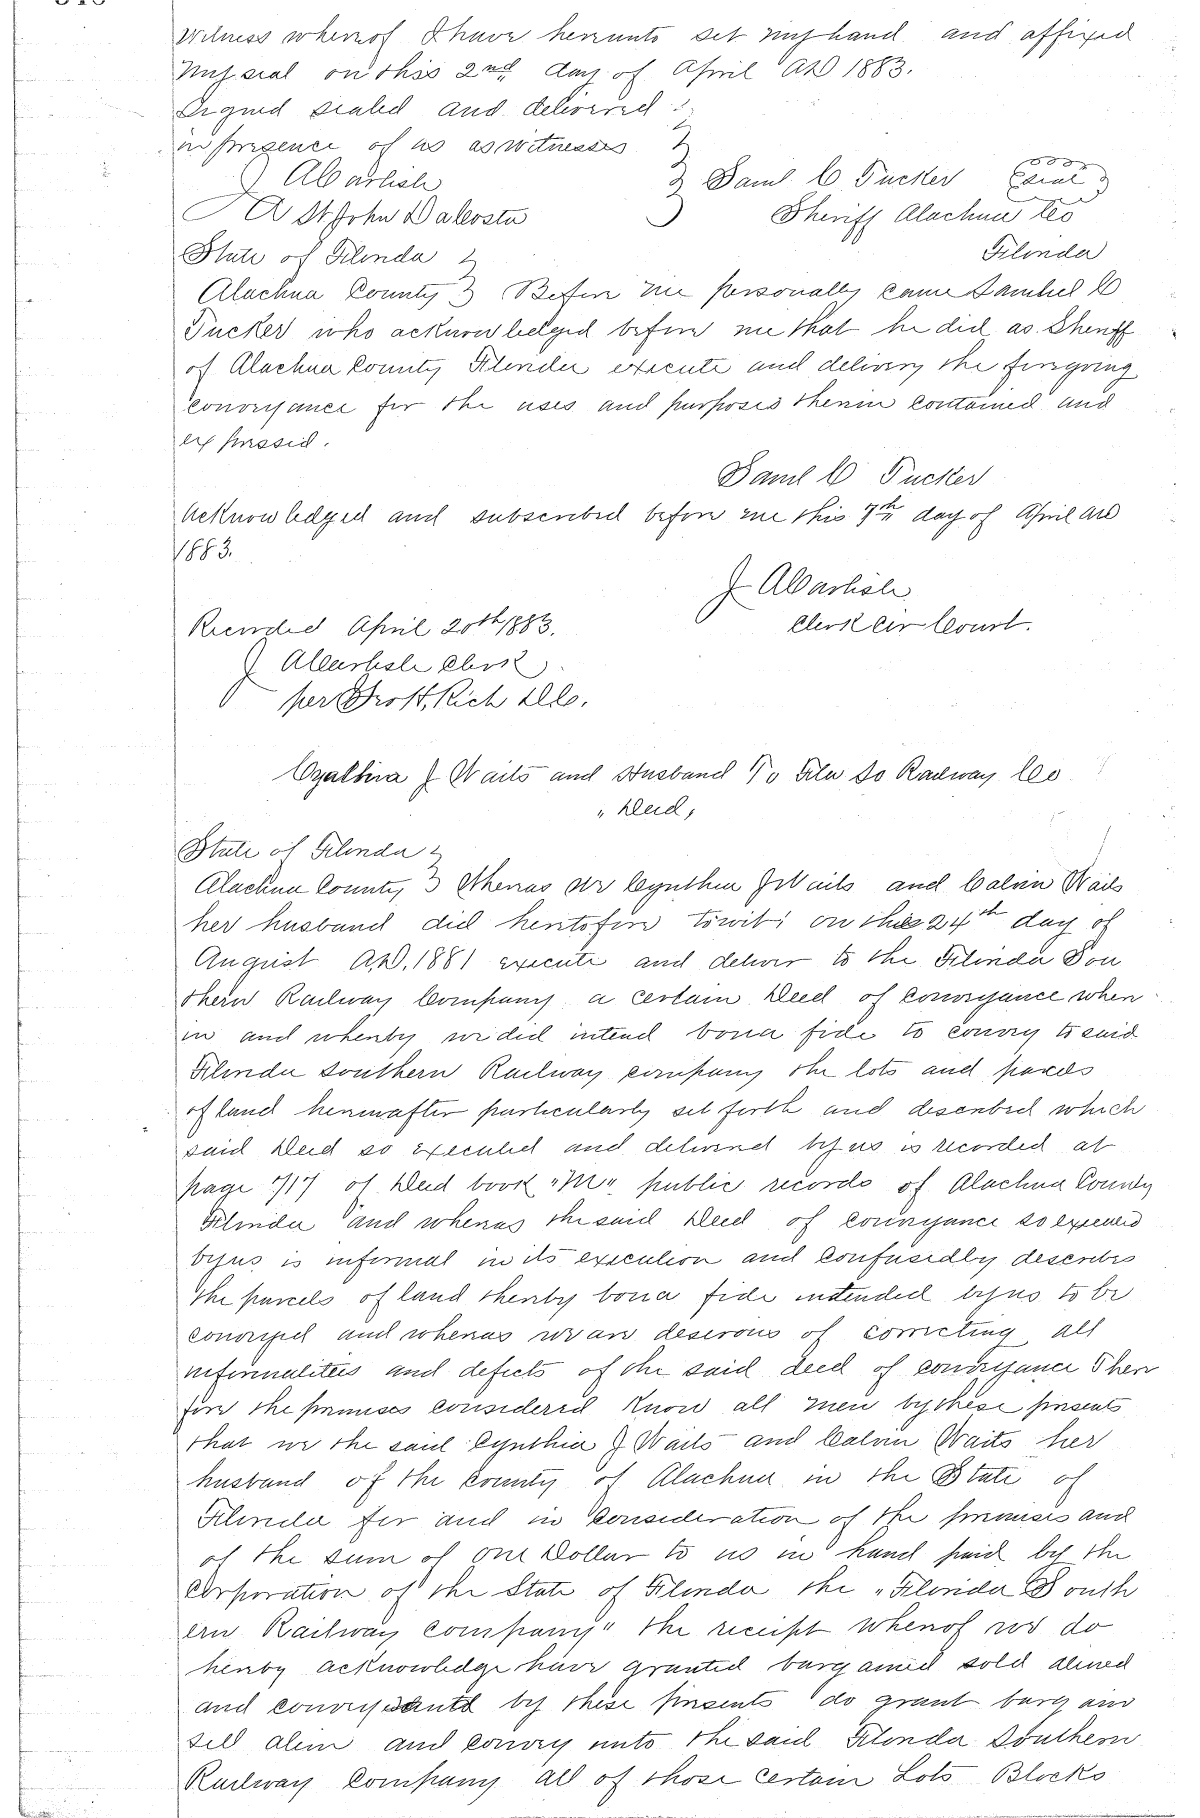 Witness whereof I have hereunto set my hand and affixed
my seal on this 2nd day of April AD 1883.
Signed sealed and delivered
in presence of us as witnesses
J A Carlisle Saml C Tucker Seal
A St John Dacosta Sheriff Alachua Co
State of Florida Florida
Alachua County Before me personally came Samuel C
Tucker who acknowledged before me that he did as Sheriff
of Alachua County Florida execute and delivery the foregoing
conveyance for the uses and purposes therein contained and
expressed.
Saml C Tucker
Acknowledged and subscribed before me this 7th day of April AD
1883.
J A Carlisle
Clerk Cir Court.
Recorded April 20th 1883.
J A Carlisle Clerk
per Rich D.C.
J Waits and Husband To Fla So Railway Co
"Deed,
State of Florida
Alachua County Whereas we Cynthia J Waits and Calvin Waits
her husband did heretofore towit; on the 24th day of
August A.D. 1881 execute and deliver to the Florida Sou
thern Railway Company a certain Deed of Conveyance where
in and whereby we did intend bona fide to convey to said
Florida Southern Railway company the lots and parcels
of land hereinafter particularly set forth and described which
said Deed so executed and delivered by us is recorded at
page 717 of Deed book "M" public records of Alachua County
Florida and whereas the said Deed of conveyance so executed
by us is informal in its execution and confusedly describes
the parcels of land thereby bona fide intended by us to be
conveyed and whereas we are desirous of correcting all
informalities and defects of the said deed of conveyance There
fore the premises considered Know all men by these presents
that we the said Cynthia J Waits and Calvin Waits her
husband of the County of Alachua in the State of
Florida for and in consideration of the premises and
of the sum of one Dollar to us in hand paid by the
Corporation of the State of Florida the "Florida South
ern Railway Company" the receipt whereof we do
hereby acknowledge have granted bargained sold aliened
and conveyed and by these presents do grant bargain
sell alien and convey unto the said Florida Southern
Railway Company all of those certain Lots Blocks